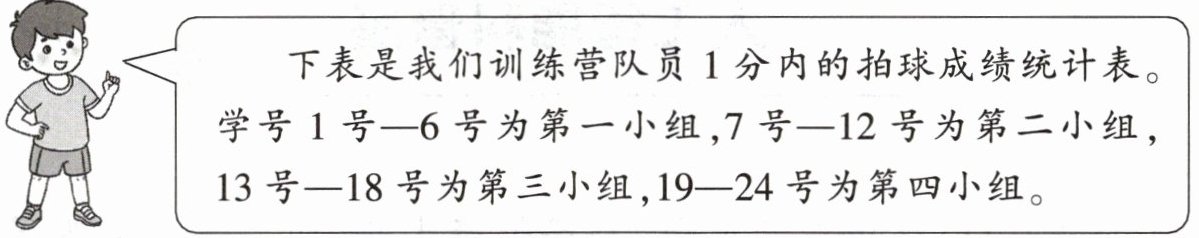 下表是我们训练营队员 1 分内的拍球成绩统计表。
学号 1 号—6 号为第一小组,7 号—12 号为第二小组,
13 号—18 号为第三小组,19—24 号为第四小组。